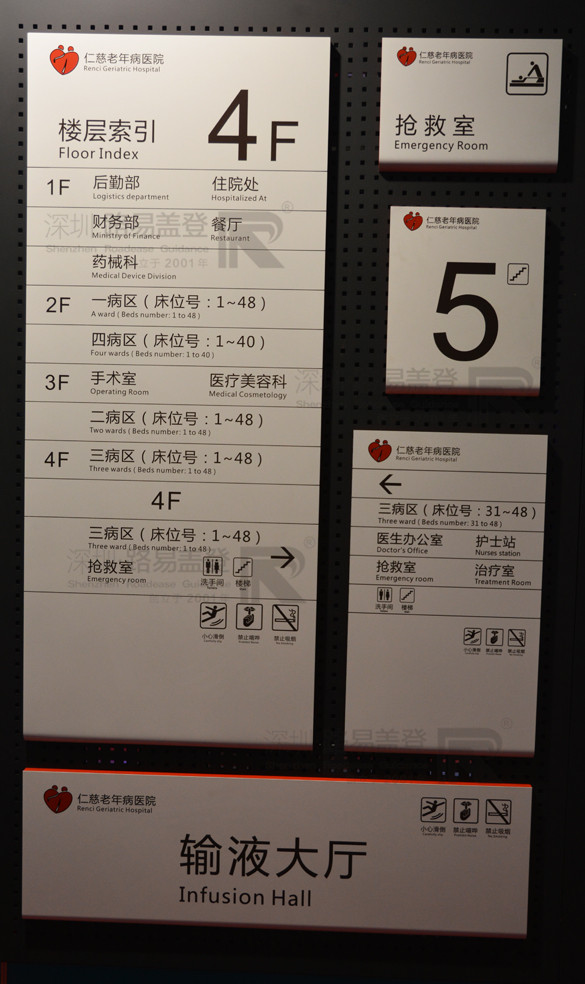 仁慈老年病医院
Renci Geriatric Hospital
楼层索引
Floor Index
4F
1F 后勤部 住院处
Logistics department Hospitalized At
财务部 餐厅
Ministry of Finance Restaurant
药械科
Medical Device Division
2F 一病区（床位号：1~48）
A ward ( Beds number: 1 to 48 )
四病区（床位号：1~40）
Four wards ( Beds number: 1 to 40 )
3F 手术室 医疗美容科
Operating Room Medical Cosmetology
二病区（床位号：1~48）
Two wards ( Beds number: 1 to 48 )
4F 三病区（床位号：1~48）
Three wards ( Beds number: 1 to 48 )
4F
三病区（床位号：1~48）
Three ward ( Beds number: 1 to 48 )
抢救室
Emergency room
洗手间 楼梯
小心滑倒 禁止喧哗 禁止吸烟
仁慈老年病医院
Renci Geriatric Hospital
抢救室
Emergency Room
仁慈老年病医院
Renci Geriatric Hospital
5
仁慈老年病医院
Renci Geriatric Hospital
三病区（床位号：31~48）
Three ward ( Beds number: 31 to 48 )
医生办公室 护士站
Doctor's Office Nurses station
抢救室 治疗室
Emergency room Treatment Room
洗手间 楼梯
小心滑倒 禁止喧哗 禁止吸烟
仁慈老年病医院
Renci Geriatric Hospital
小心滑倒 禁止喧哗 禁止吸烟
输液大厅
Infusion Hall
深圳路易盖登
Shenzhen Roadease Guidance
立于 2001 年
R®